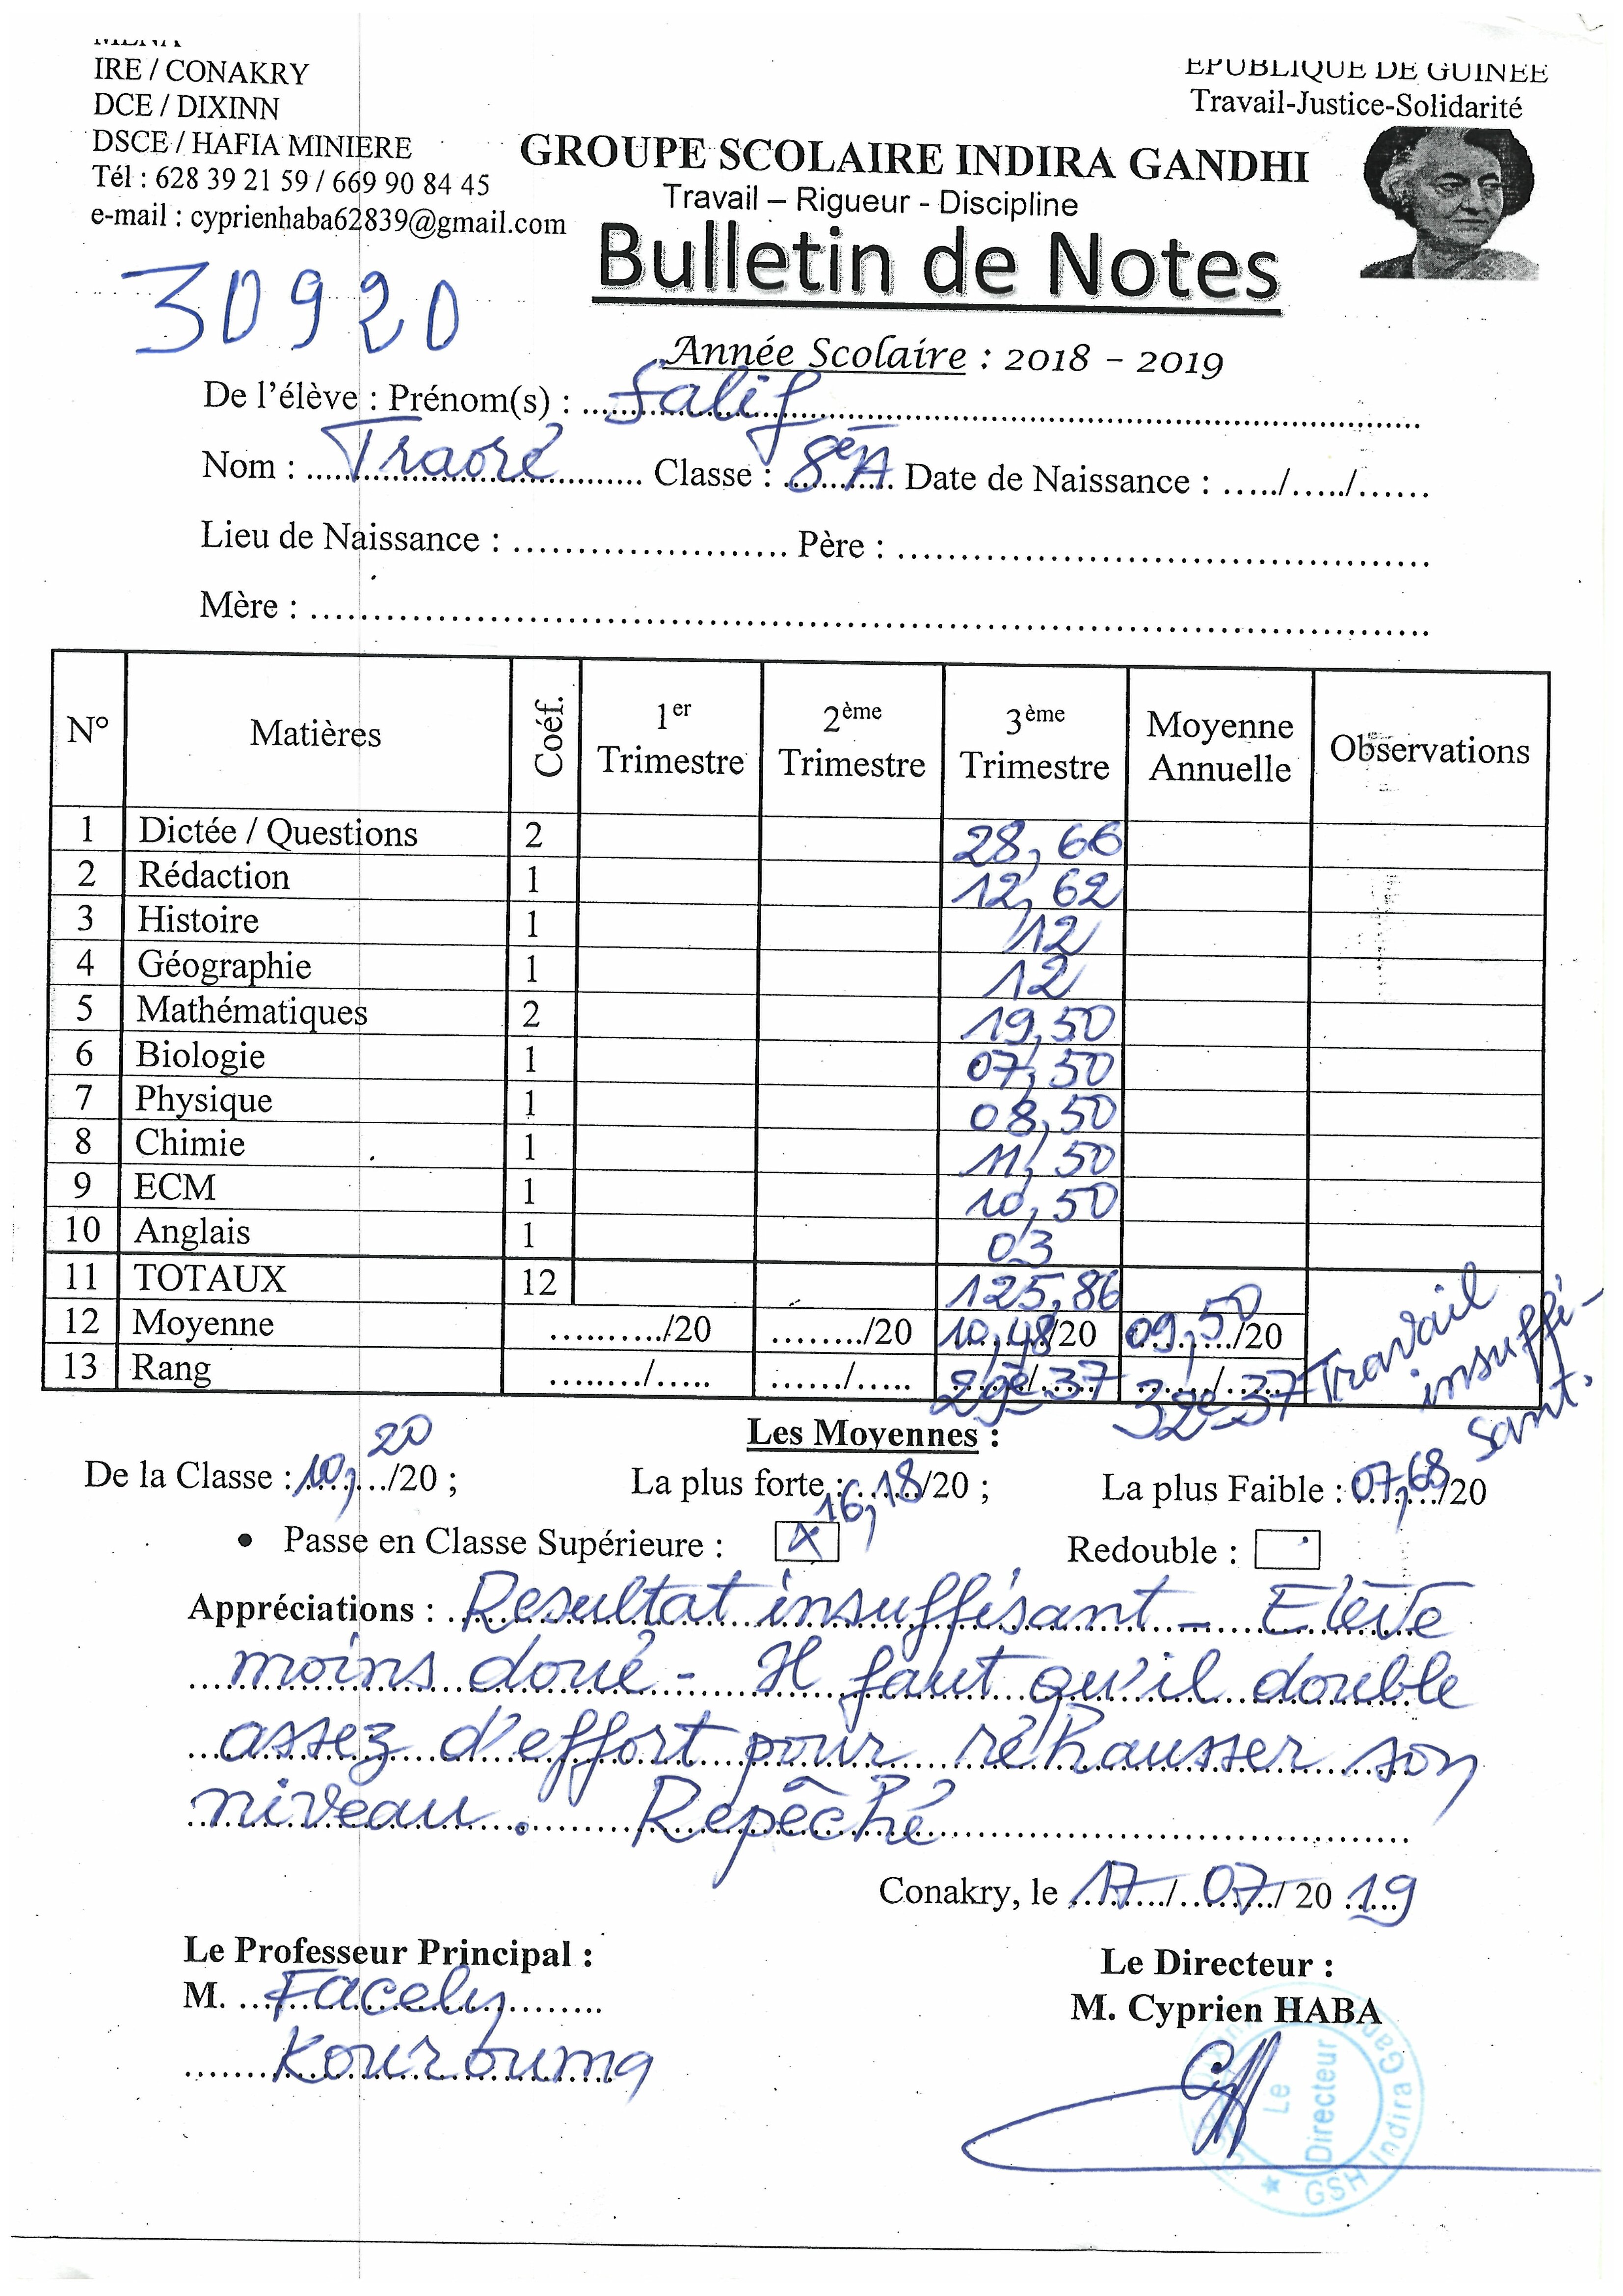 IRE / CONAKRY
DCE / DIXINN
DSCE / HAFIA MINIERE
Tél : 628 39 21 59 / 669 90 84 45
e-mail : cyprienhaba62839@gmail.com
EPUBLIQUE DE GUINEE
Travail-Justice-Solidarité
GROUPE SCOLAIRE INDIRA GANDHI
Travail – Rigueur - Discipline
Bulletin de Notes
30920
Année Scolaire : 2018 - 2019
De l'élève : Prénom(s) : Salif
Nom : Traoré Classe : 8e A Date de Naissance : …../…../……
Lieu de Naissance : …………………… Père : ……………………………………
Mère : ……………………………………………………………………
N° Matières Coéf. 1er Trimestre 2ème Trimestre 3ème Trimestre Moyenne Annuelle Observations
1 Dictée / Questions 2 28,66
2 Rédaction 1 12,62
3 Histoire 1 12
4 Géographie 1 12
5 Mathématiques 2 19,50
6 Biologie 1 07,50
7 Physique 1 08,50
8 Chimie 1 11,50
9 ECM 1 10,50
10 Anglais 1 03
11 TOTAUX 12 125,86
12 Moyenne ………./20 ……../20 10,48/20 09,50/20
13 Rang ……../….. ……/….. 29e/37 32e/37
Travail insuffi-
sant.
Les Moyennes :
De la Classe : 10,20/20 ; La plus forte : 16,18/20 ; La plus Faible : 07,68/20
• Passe en Classe Supérieure : X Redouble :
Appréciations : Resultat insuffisant - Elève
moins doué - Il faut qu'il double
assez d'effort pour réhausser son
niveau. Repêché
Conakry, le 17/07/2019
Le Professeur Principal :
M. Facely
Kourouma
Le Directeur :
M. Cyprien HABA
Le Directeur
GSH Indira Gandhi